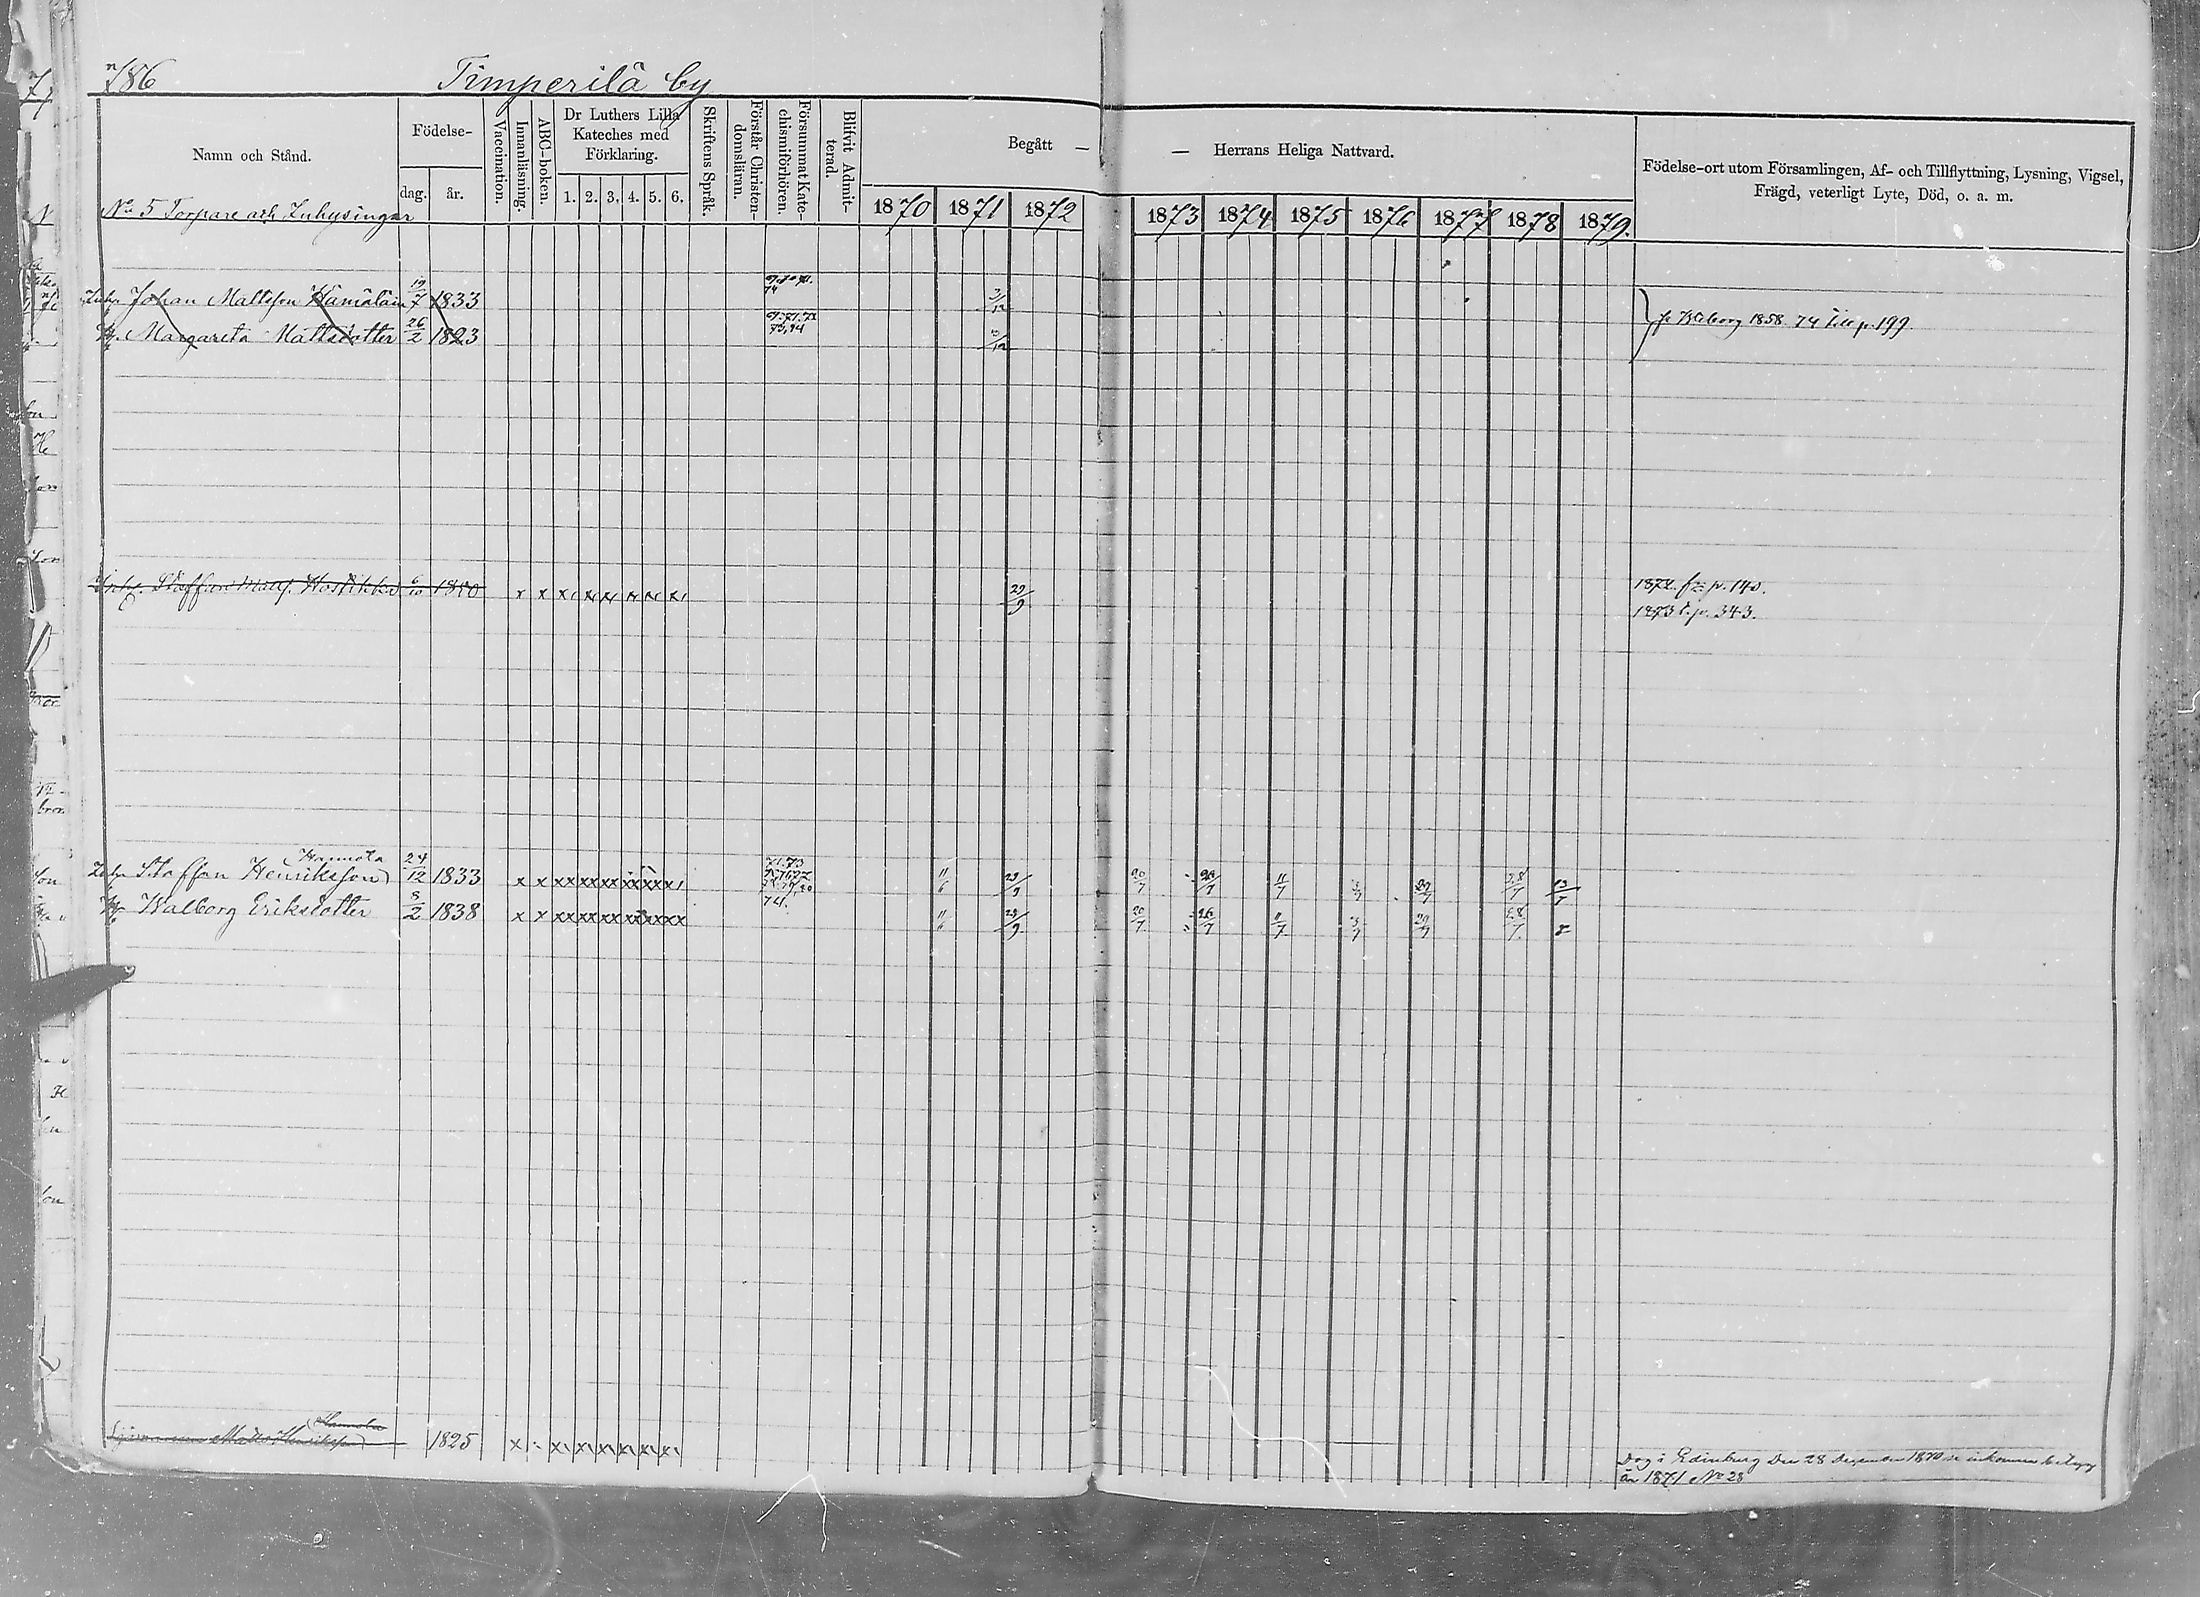 786 Timperilä by
Namn och Stånd.
Födelse-
dag. år.
Vaccination.
Innanläsning.
ABC-boken.
Dr Luthers Lilla
Kateches med
Förklaring.
1. 2. 3. 4. 5. 6.
Skriftens Språk.
Förstår Christen-
domsläran.
Försummat Kate-
chismiförhören.
Blifvit Admit-
terad.
Begått — — Herrans Heliga Nattvard.
1870 1871 1872 1873 1874 1875 1876 1877 1878 1879.
Födelse-ort utom Församlingen, Af- och Tillflyttning, Lysning, Vigsel,
Frägd, veterligt Lyte, Död, o. a. m.
No 5 Torpare och Inhysingar
Inhy Johan Mattsson Hämäläin 19/7 1833 74 3/12
H. Margareta Mattsdotter 26/2 1823 73,74 3/12
fr Wiborg 1858. 74 till p. 199.
Inhy. Staffan 6/10 x x x x x x x x 29/9 p. 140.
1873 t. p. 343.
Hannola
Inhy Staffan Henriksson 24/12 1833 x x xx xx xx xx xx x 11/6 29/9 20/7 26/7 11/7 3/7 29/7 28/7 13/7
H. Walborg Eriksdotter 8/2 1838 x x xx xx xx xx xx xx 11/6 29/9 20/7 26/7 11/7 3/7 29/7 28/7
Hannola
Matts Henriksson 1825 x x x x x x x
Dog i Edinburg Den 28 december 1870 se inkomne
år 1871 No 28